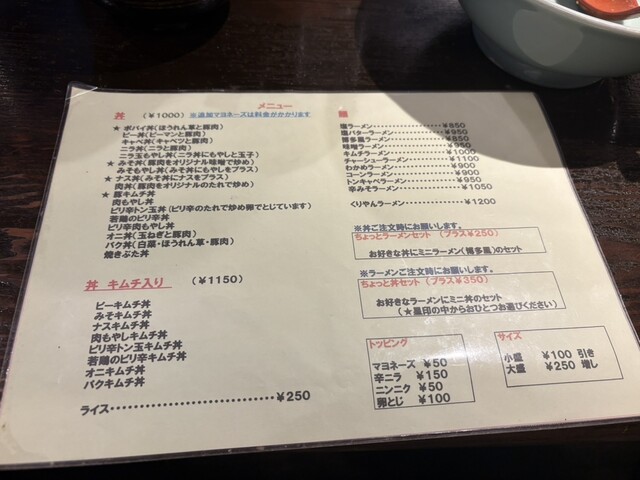 メニュー
丼 （¥1000） ※追加マヨネーズは料金がかかります
★ ポパイ丼（ほうれん草と豚肉）
ピー丼（ピーマンと豚肉）
キャベ丼（キャベツと豚肉）
ニラ丼（ニラと豚肉）
ニラ玉もやし丼（ニラ丼にもやしと玉子）
★ みそ丼（豚肉をオリジナル味噌で炒め）
みそもやし丼（みそ丼にもやしをプラス）
★ ナス丼（みそ丼にナスをプラス）
肉丼（豚肉をオリジナルのたれで炒め）
★ 豚キムチ丼
肉もやし丼
ピリ辛トン玉丼（ピリ辛のたれで炒め卵でとじています）
若鶏のピリ辛丼
ピリ辛肉もやし丼
オニ丼（玉ねぎと豚肉）
バク丼（白菜・ほうれん草・豚肉）
焼きぶた丼
丼 キムチ入り （¥1150）
ピーキムチ丼
みそキムチ丼
ナスキムチ丼
肉もやしキムチ丼
ピリ辛トン玉キムチ丼
若鶏のピリ辛キムチ丼
オニキムチ丼
バクキムチ丼
ライス・・・・・・・・・・・・・・・・・・・・・・・・・・・・¥250
麺
塩ラーメン・・・・・・・・・・・・・・・・¥850
塩バターラーメン・・・・・・・・・・・・¥950
博多風ラーメン・・・・・・・・・・・・・・¥850
味噌ラーメン・・・・・・・・・・・・・・・・¥950
キムチラーメン・・・・・・・・・・・・・・¥1000
チャーシューラーメン・・・・・・・・・・¥1100
わかめラーメン・・・・・・・・・・・・・・¥900
コーンラーメン・・・・・・・・・・・・・・¥900
トンキャベラーメン・・・・・・・・・・・・¥950
辛みそラーメン・・・・・・・・・・・・・・¥1050
くりやんラーメン・・・・・・・・・・・・¥1200
※丼ご注文時にお願いします。
ちょっとラーメンセット （プラス¥250）
お好きな丼にミニラーメン（博多風）のセット
※ラーメンご注文時にお願いします。
ちょっと丼セット （プラス¥350）
お好きなラーメンにミニ丼のセット
（★星印の中からおひとつお選びください）
トッピング
マヨネーズ ¥50
辛ニラ ¥150
ニンニク ¥50
卵とじ ¥100
サイズ
小盛 ¥100 引き
大盛 ¥250 増し